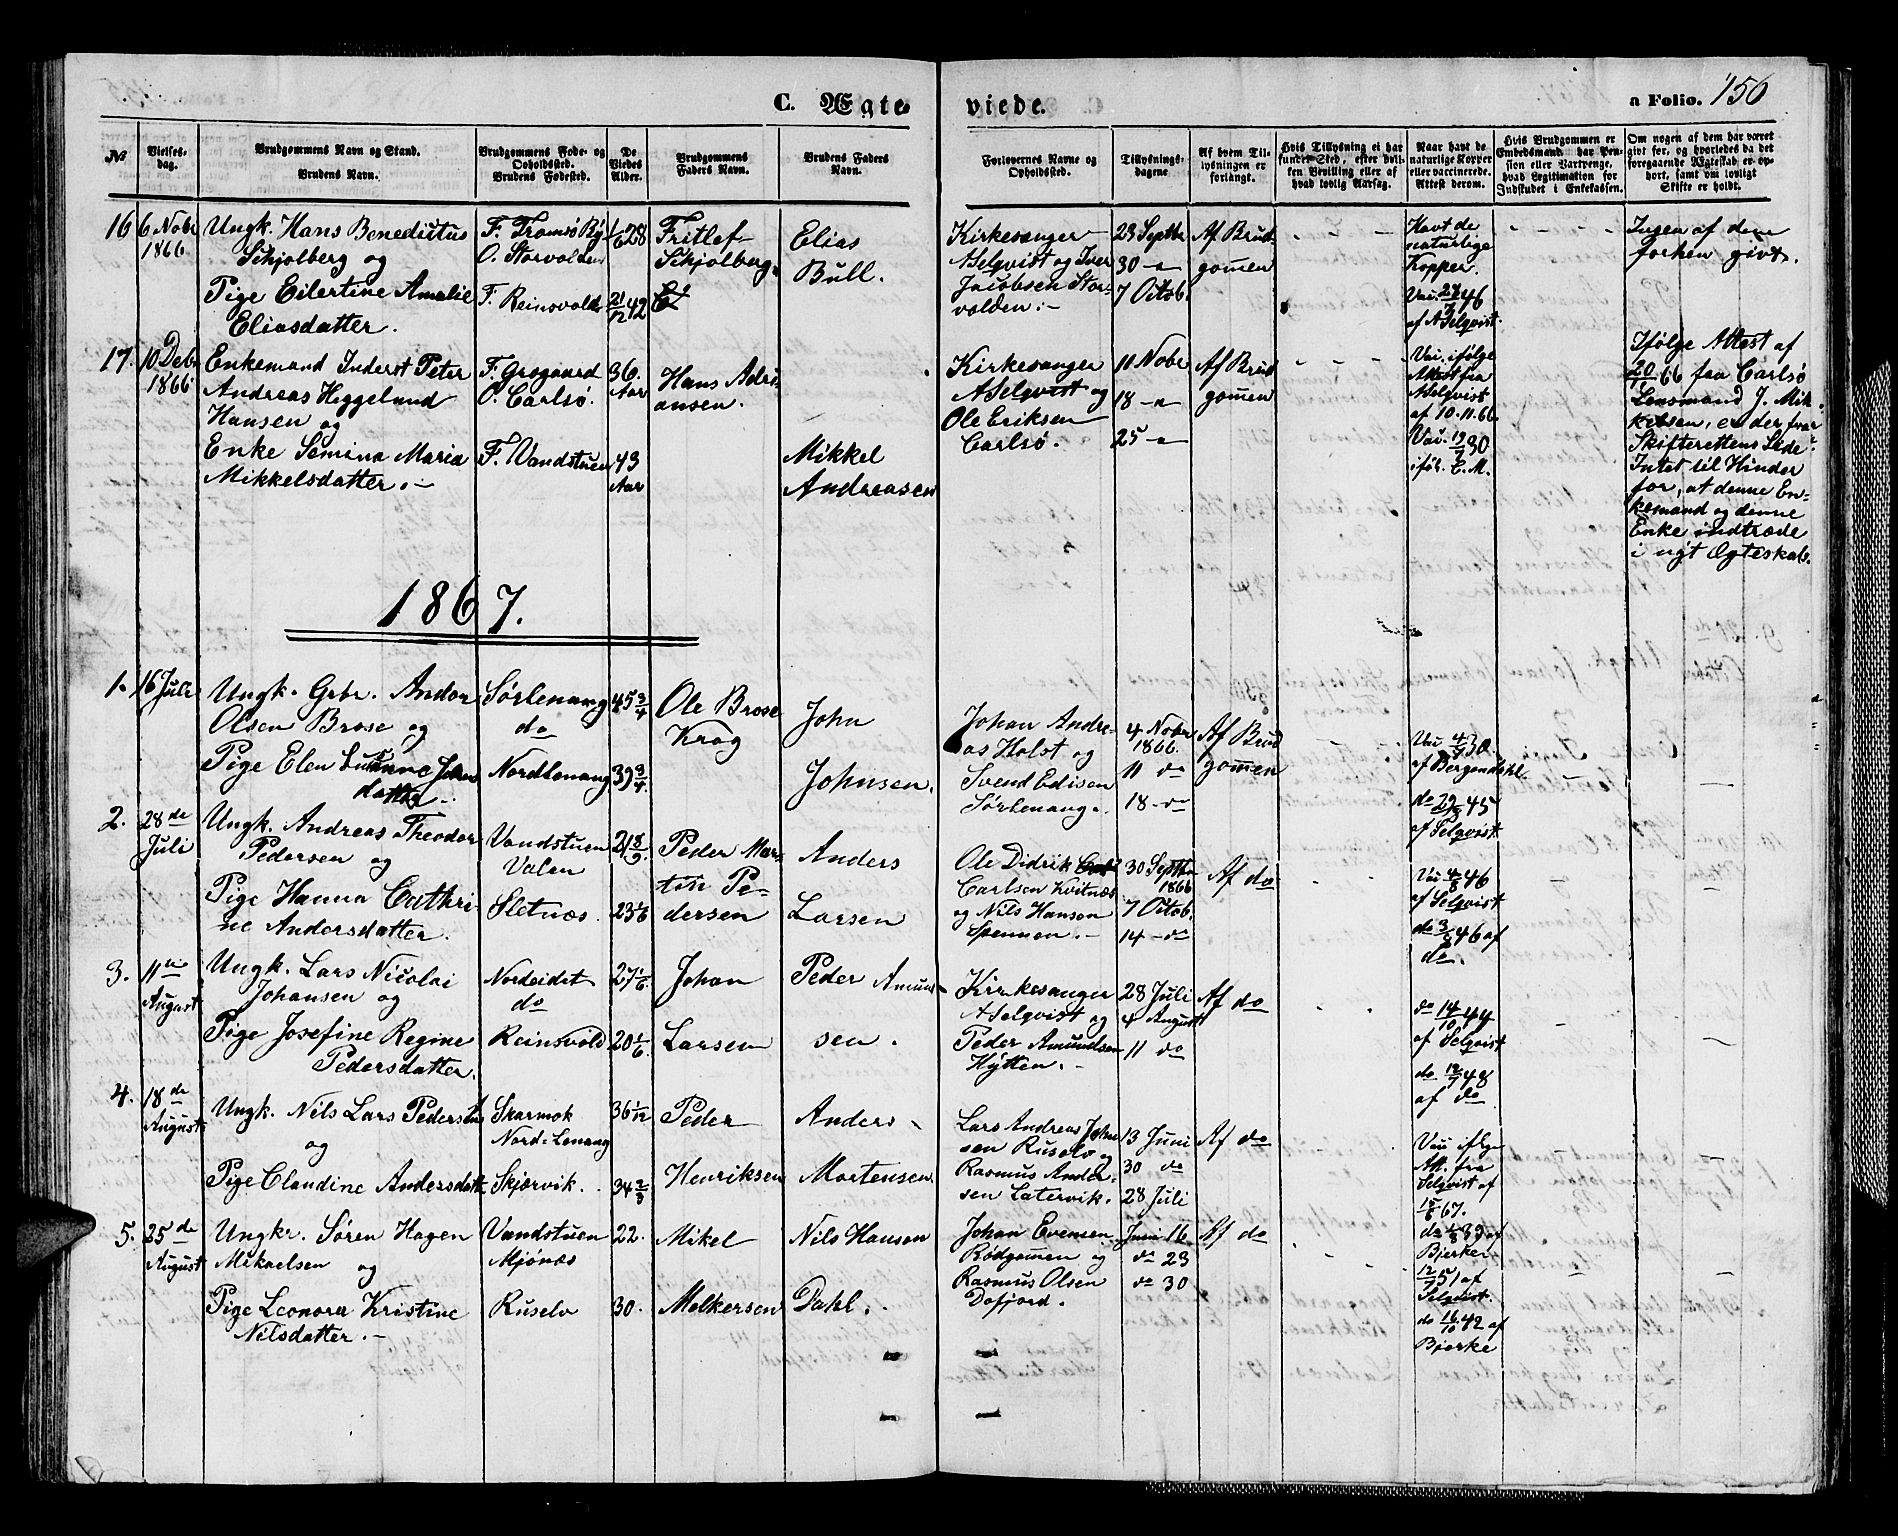 C. Ægte
viede.
a Folio. 150
№
Vielses-
dag.
Brudgommens Navn og Stand.
Brudens Navn.
Brudgommens Føde- og
Opholdssted.
Brudens Fødested.
De
Viedes
Alder.
Brudgommens
Faders Navn.
Brudens Faders
Navn.
Forlovernes Navne og
Opholdssted.
Tillysnings-
dagene
Af hvem Til-
lysningen er
forlangt.
Hvis Tillysning ei har
fundet Sted, efter hvil-
ken Bevilling eller af
hvad lovlig Aarsag.
Naar havt de
naturlige Kopper
eller vaccinerede.
Attest derom.
Hvis Brudgommen er
Embedsmand, har Pen-
sion eller Vartpenge,
hvad Legitimation for
Indskudet i Enkekassen.
Om nogen af dem har været
gift før, og hvorledes da det
foregaaende Ægteskab er op-
hørt, samt om lovligt
Skifte er holdt.
16
6 Nobr
1866
Ungk. Hans Benedictus
Schjølberg og
Pige Eilertine Amalie
Eliasdatter.
F. Tromsø By
O. Storvolden
F. Reinsvold
28
21/12 42
Fritlef
Schjølberg
Elias
Bull.
Kirkesanger
A Selqvist og Iver
Jacobsen Stor-
volden.-
23 Septbr
30 -a
7 Octob.
Af Brud-
gomen
Havt de
naturlige
Kopper.
46
af A Selqvist.
Ingen af dem
forhen givt.
17.
10 Debr
1866
Enkemand Inderst Peter
Andreas Heggelund
Hansen og
Enke Sømina Maria
Mikkelsdatter.-
F. Grogaard
O. Carlsø.
F. Vandstuen
36
Aar
43
Aar
Hans Adri-
ansen.
Mikkel
Andreasen
Kirkesanger
A Selqvist og
Ole Eriksen
Carlsø.
11 Nobr
18 -a
25 -a
Af Brud
gomen
Vai. ifølge
Attest fra
A Selqvist
af 10.11.66
Vai. 19/7 30
iføl. C. M.
Ifølge Attest af
20/1 66 fra Carlsø
Lensmand J. Mik-
kelsen, er der fra
Skifterettens Side
Intet til Hinder
for, at denne En-
kemand og denne
Enke indtræde
i nÿt Ægteskab.
1867.
1.
16 Juli
Ungk. Grbr. Andor
Olsen Brose og
Pige Elen Susanne Johns
datter.-
Sørlenang
do
Nordlenang
45 3/4
39 3/4
Ole Brose
Krog
John
Johnsen.
Johan Andre-
as Holst og
Svend Edisen
Sørlenang.
4 Nobr
1866.
11 do
18 - do
Af Brud
gomen
Vai 30
af Bergendahl.
do 45
af Selqvist
2.
28de
Juli
Ungk. Andreas Theodor
Pedersen og
Pige Hanna Cathri-
ne Andersdatter.
Vandstuen
Valen
Sletnæs.
21 8/9.
23 1/6
Peder Mar-
tin Pe-
dersen
Anders
Larsen
Ole Didrik
Carlsen Kvitnæs
og Nils Hansen
Spennen.-
30 Septbr
1866
7 Octob.
14 - do
Af do
Vai 4/8 46
af Selqvist
do 3/8 46 af
do.
3.
11te
August
Ungk. Lars Nicolai
Johansen og
Pige Josefine Regine
Pedersdatter.
Nordeidet
do
Reinsvold
27 1/6
20 1/6
Johan
Larsen
Peder Amund-
sen.
Kirkesanger
A Selqvist og
Peder Amundsen
Hÿtten.-
28 Juli
4 August
11 do
Af do
do 14/10 44
af Selqvist
do 12/7 48
af do
4.
18de
August
Ungk. Nils Lars Pedersen
og
Pige Claudine Andersdatt.
Skarmok
Nord-Lenang
Skjærvik.
36 1/12
34 2/3
Peder
Henriksen
Anders
Mortensen
Lars Andreas John
sen Ruselv og
Rasmus Ander-
sen Latervik.
13 Juni
30 do
28 Juli
Af do
Vai iflge
Att. fra
Selqvist af
15/6 67.
do 1/8 39 af
Bjerke
5.
25de
August
Ungkr. Søren Hagen
Mikaelsen og
Pige Leonora Kristine
Nilsdatter.-
Vandstuen
Mjønæs
Ruselv
22.
30.
Mikel
Melkersen
Nils Hansen
Dahl.
Johan Evensen
Rødgamen og
Rasmus Olsen
Dafjord.
Juni 16
do 23
do 30
Af do
12/7 51 af
Selqvist.
do 16/10 42 af
Bjerke